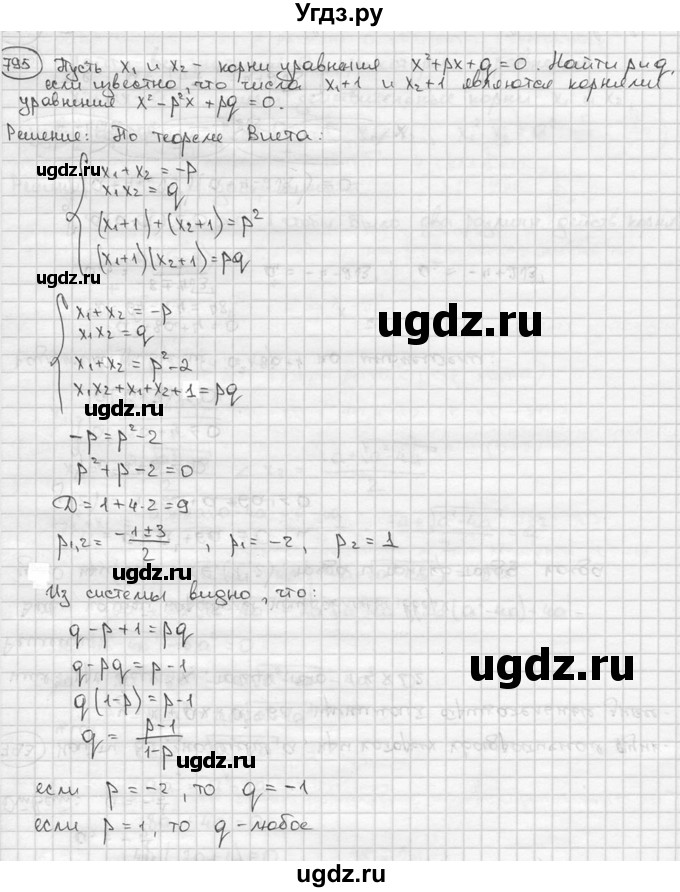 Угдз.ру
795 Пусть x₁ и x₂ - корни уравнения x²+px+q=0. Найти p и q,
если известно, что числа x₁+1 и x₂+1 являются корнями
уравнения x²-p²x+pq=0.
Решение: По теореме Виета:
ugdz.ru
x₁+x₂=-p
x₁x₂=q
(x₁+1)+(x₂+1)=p²
(x₁+1)(x₂+1)=pq
ugdz.ru
x₁+x₂=-p
x₁x₂=q
ugdz.ru
x₁+x₂=p²-2
x₁x₂+x₁+x₂+1=pq
ugdz.ru
-p=p²-2
p²+p-2=0
D=1+4·2=9
p₁,₂=(-1±3)/2, p₁=-2, p₂=1
ugdz.ru
Из системы видно, что:
q-p+1=pq
q-pq=p-1
ugdz.ru
q(1-p)=p-1
q=(p-1)/(1-p)
ugdz.ru
если p=-2, то q=-1
если p=1, то q-любое
ugdz.ru
Угдз.ру